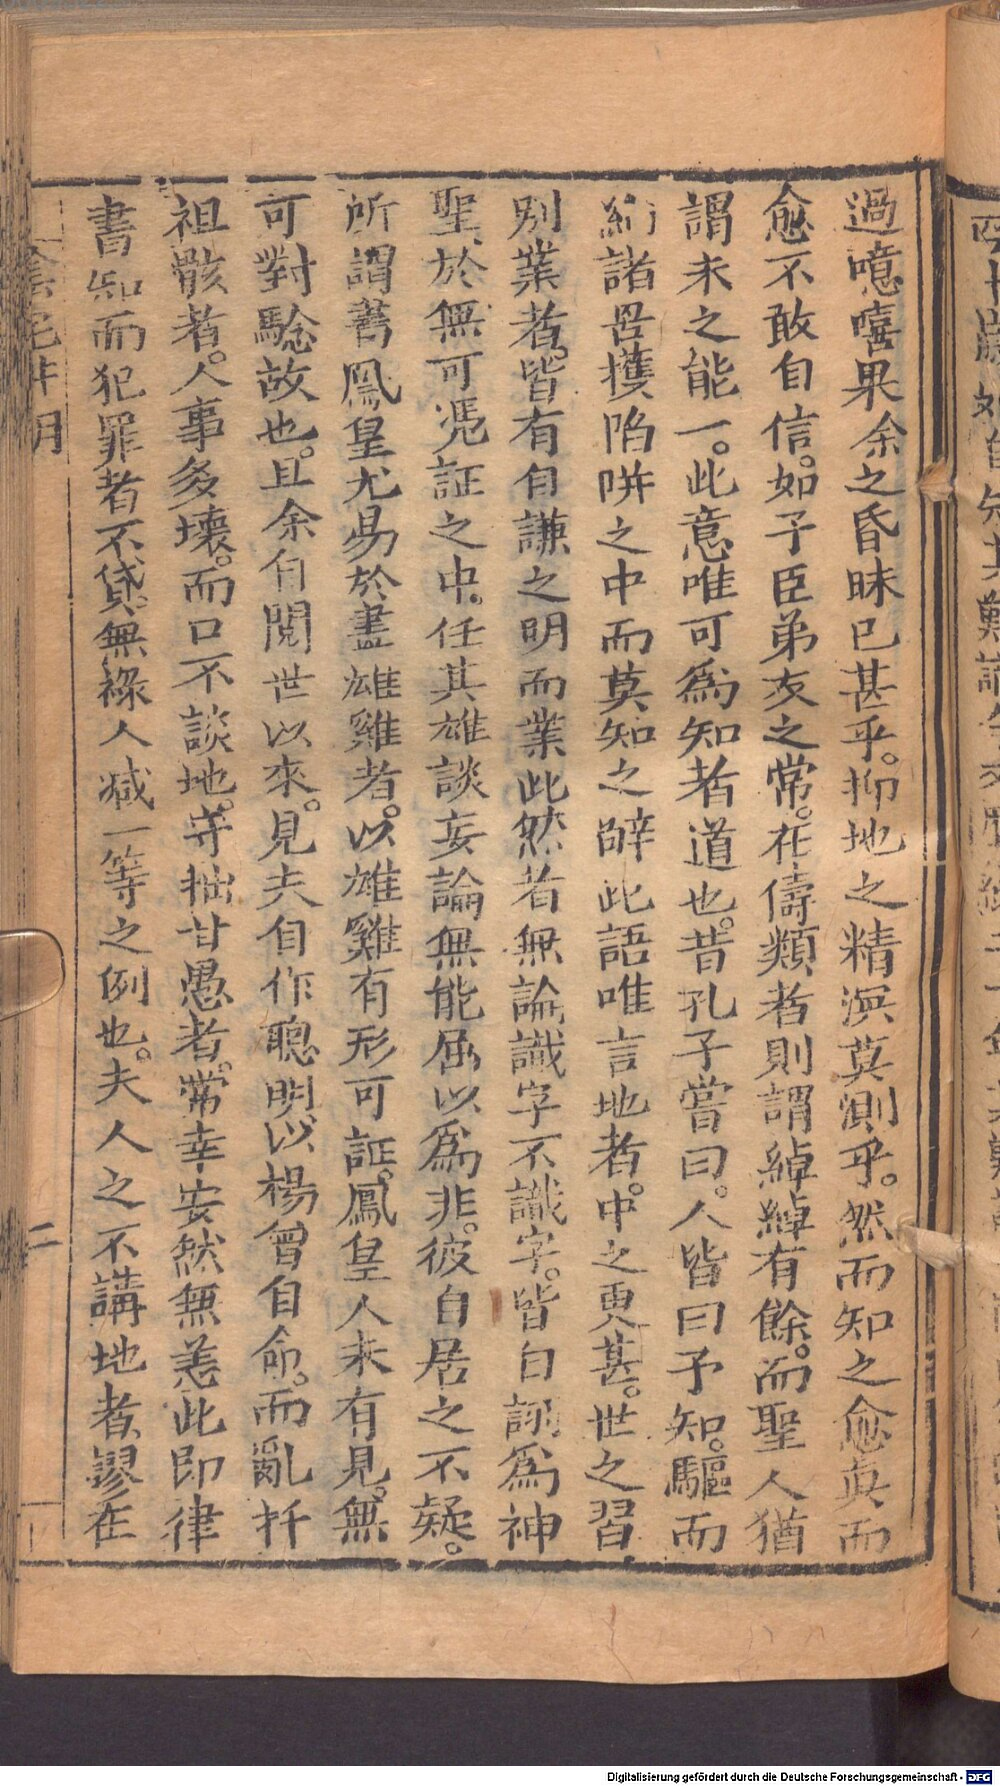 過噫嘻果余之昏昧已甚乎。抑地之精溟莫測乎。然而知之愈眞而
愈不敢自信。如子臣弟友之常。在儔類者則謂綽綽有餘。而聖人猶
謂未之能一。此意唯可爲知者道也。昔孔子嘗曰。人皆曰予知。驅而
納諸罟擭陷阱之中而莫知之辟此語唯言地者。中之更甚。世之習
別業者。皆有自謙之明而業此然者無論識字不識字。皆自詡爲神
聖、於無可凴証之中。任其雄談妄論無能屈以爲非。彼自居之不疑。
所謂蓍鳳皇尤易於畫雄雞者。以雄雞有形可証。鳳皇人未有見。無
可對騐故也。且余自閱世以來。見夫自作聰明以楊曾自命。而亂扦
祖骸者。人事多壞。而口不談地。守拙甘愚者。常幸安然無恙此即律
書知而犯罪者不貸。無祿人減一等之例也。夫人之不講地者、謬在
二
Digitalisierung gefördert durch die Deutsche Forschungsgemeinschaft - DFG